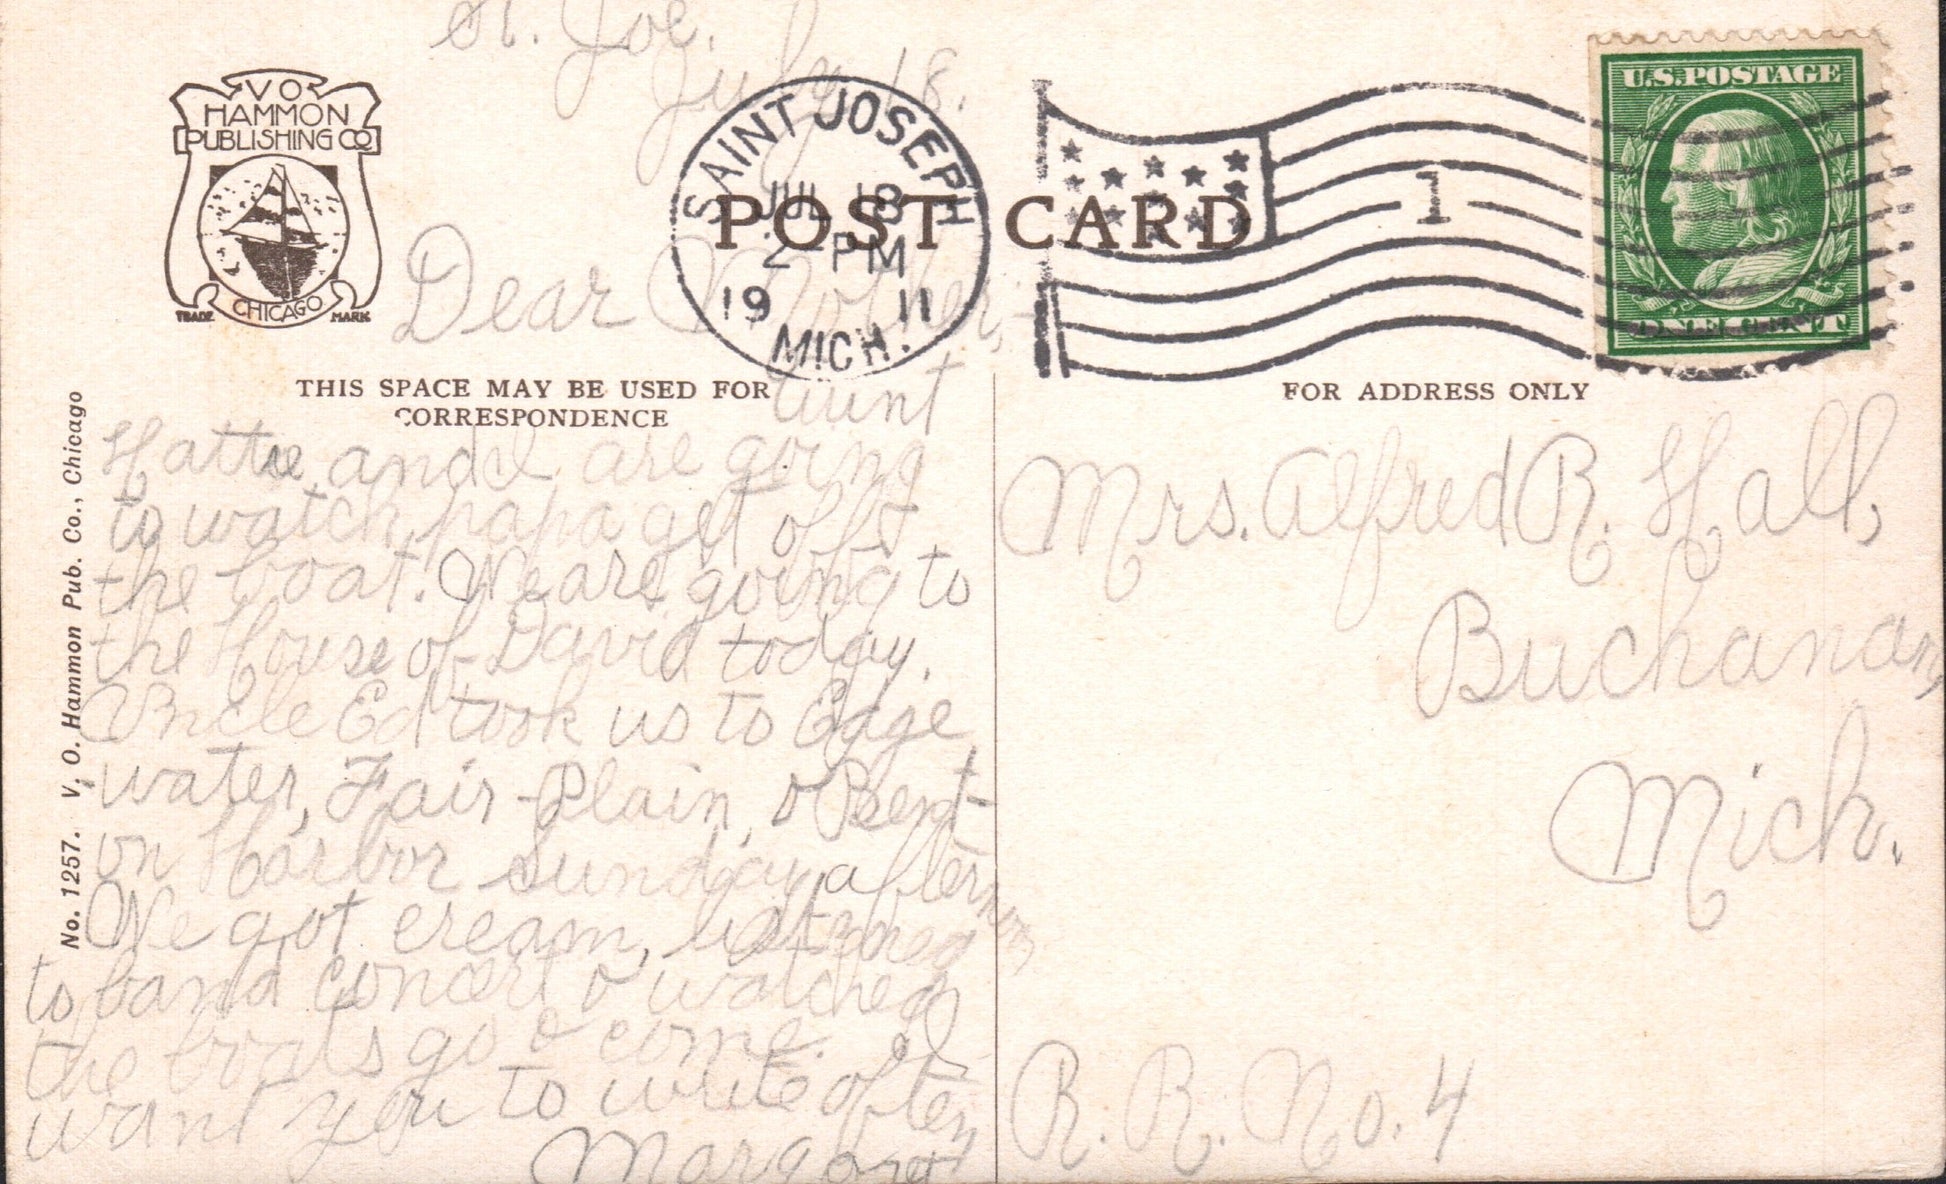 St. Joe.
July 18.
V O
HAMMON
PUBLISHING CO
CHICAGO
TRADE MARK
SAINT JOSEPH
JUL 18
2 PM
19 11
MICH.
POST CARD
1
U.S. POSTAGE
THIS SPACE MAY BE USED FOR
CORRESPONDENCE
FOR ADDRESS ONLY
No. 1257. V. O. Hammon Pub. Co., Chicago
Dear Mother,-
Aunt
Hattie and I are going
to watch papa get off
the boat. We are going to
the House of David today.
Uncle Ed took us to Edge
water, Fair-Plain, & Bent-
on Harbor Sunday afternoon
We got cream, listened
to band concert & watched
the boats go & come. I
want you to write often
Margaret
Mrs. Alfred R. Hall,
Buchanan,
Mich.
R. R. No. 4